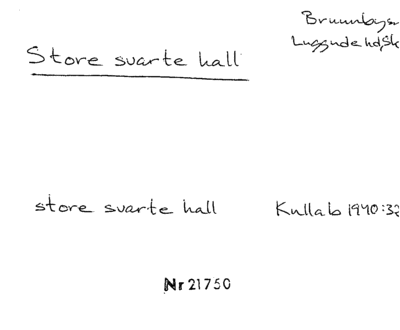 Brunnbys
Luggude hd, Sk
Store svarte hall
store svarte hall Kullab 1940:32
Nr 21750